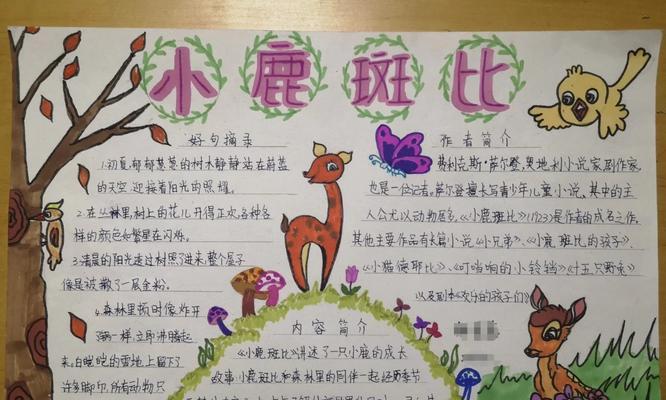 小鹿斑比
好句摘录
1.初夏,郁郁葱葱的树木静静站在蔚蓝
的天空,迎接着阳光的照耀。
2.在丛林里,树上的花儿开得正欢,各种各
样的颜色如繁星在闪烁。
3.清晨的阳光透过树照了进来,整个屋子
像是被撒了一层金粉。
4.森林里顿时像炸开
了锅一样,立即沸腾起
来。白皑皑的雪地上留下了
许多脚印,所有动物只
作者简介
费利克斯·萨尔登,奥地利小说家剧作家,
也是一位记者。萨尔登擅长写青少年儿童小说,其中的主
人公尤以动物居多。《小鹿斑比》(1923)是作者的成名之作。
其他主要作品有长篇小说《小兄弟》、《小鹿斑比的孩子》、
《小猫德耶比》、《叮当响的小铃铛》《十五只野兔》
以及剧本《欢乐的孩子们》
内容简介
《小鹿斑比》讲述了一只小鹿的成长
故事,小鹿斑比和森林里的同伴一起经历季节